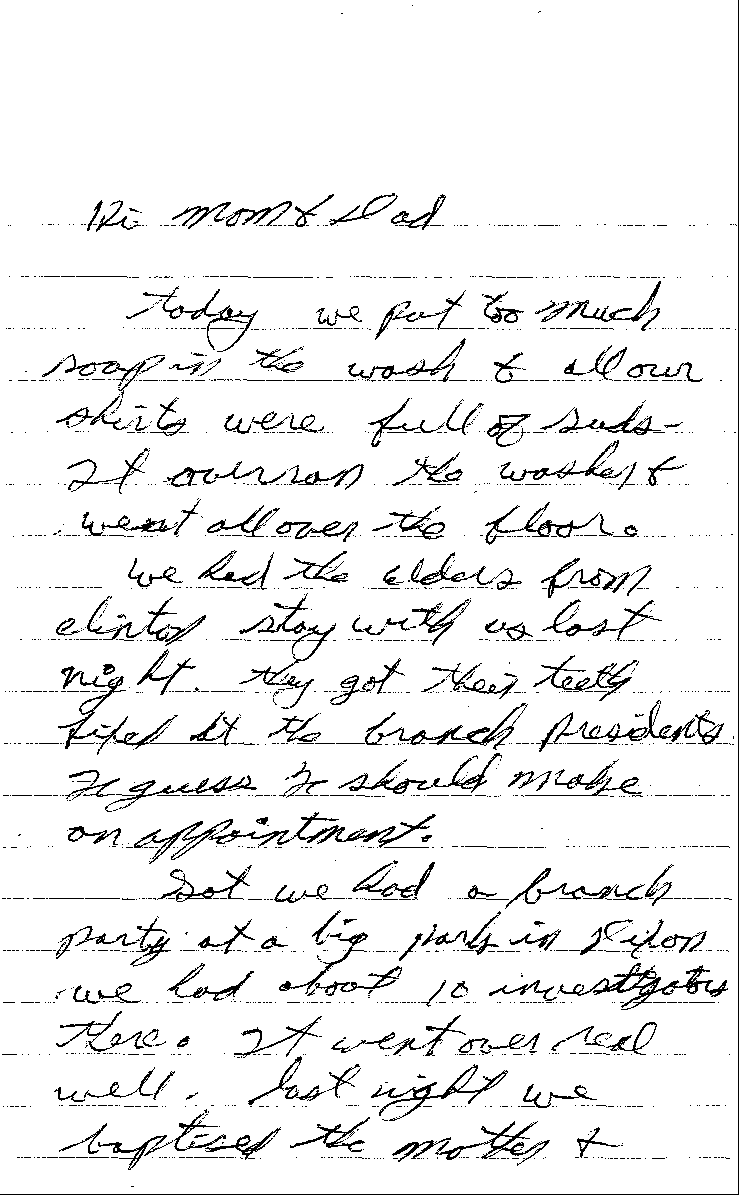 Hi mom & Dad
today we put too much
soap in the wash & all our
shirts were full of suds -
It overran the washer &
went all over the floor.
we had the elders from
clinton stay with us last
night. they got their teeth
fixed at the branch presidents.
I guess I should make
an appointment.
Sat we had a branch
party at a big park in Dixon
we had about 10 investigators
there. It went over real
well. last night we
baptised the mother &